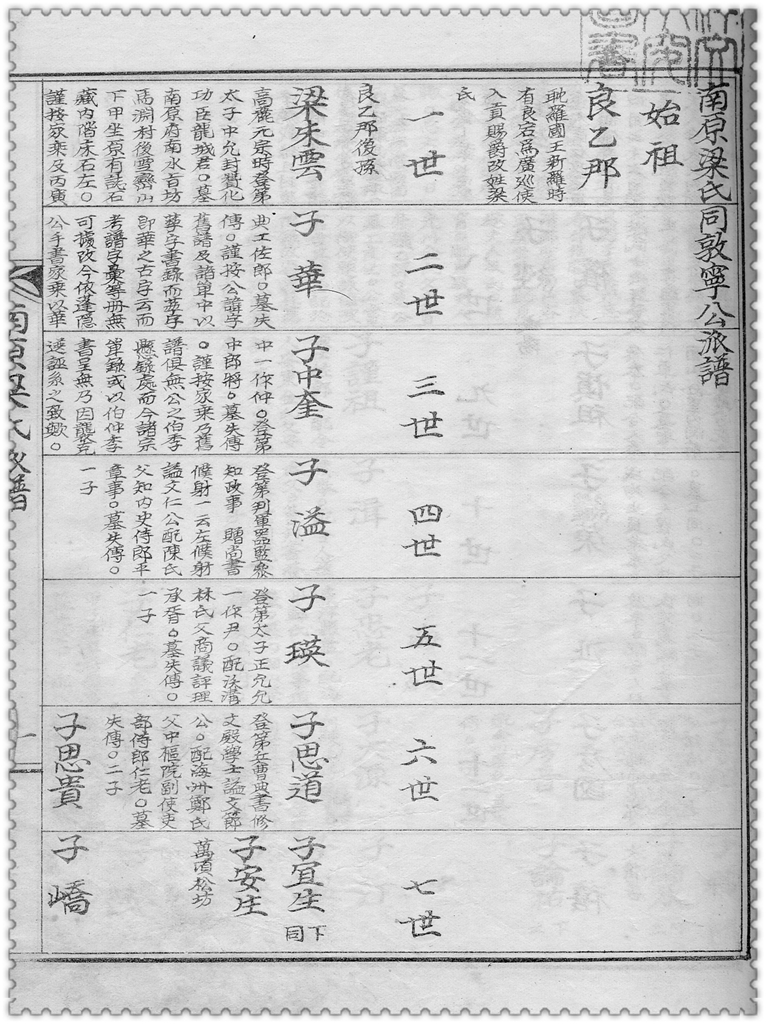 南原梁氏同敦寧公派譜
始祖
良乙那
耽羅國王新羅時
有良宕爲廣巡使
入貢賜爵改姓梁
氏
一世
良乙那後孫
梁朱雲
高麗元宗時登第
太子中允封贊化
功臣龍城君○墓
南原府南水旨坊
馬渊村後
下甲坐原有誌石
藏内階床石左○
謹按家乘及丙寅
二世
子華
典工佐郎○墓失
傳○謹按公諱字
舊譜及諧單中以
字書錄而字
卽華之古字云而
考譜字彙等冊無
可據改今依蓬隱
公手書家乘以華
三世
子中奎
中一作仲○登第
中郎將○墓失傳
○謹按家乘乃舊
譜俱無公之伯季
懸錄處而今諸宗
單錄或以伯仲季
書呈無乃因襲
誣系之致歟○
四世
子溢
登第判軍器監叅
知政事 贈尚書
僕射一云左僕射
謚文仁公配陳氏
父知内史侍郎平
章事○墓失傳○
一子
五世
子瑛
登第太子正允允
一作尹○配沃溝
林氏父商議評理
承胥○墓失傳○
一子
六世
子思道
登第兵曹典書修
文殿學士謚文節
公○配海洲鄭氏
父中樞院副使吏
部侍郎仁老○墓
失傳○二子
子思貴
七世
子宜生
下同
子安生
萬頃松坊
子嶠
南原梁氏族譜
一